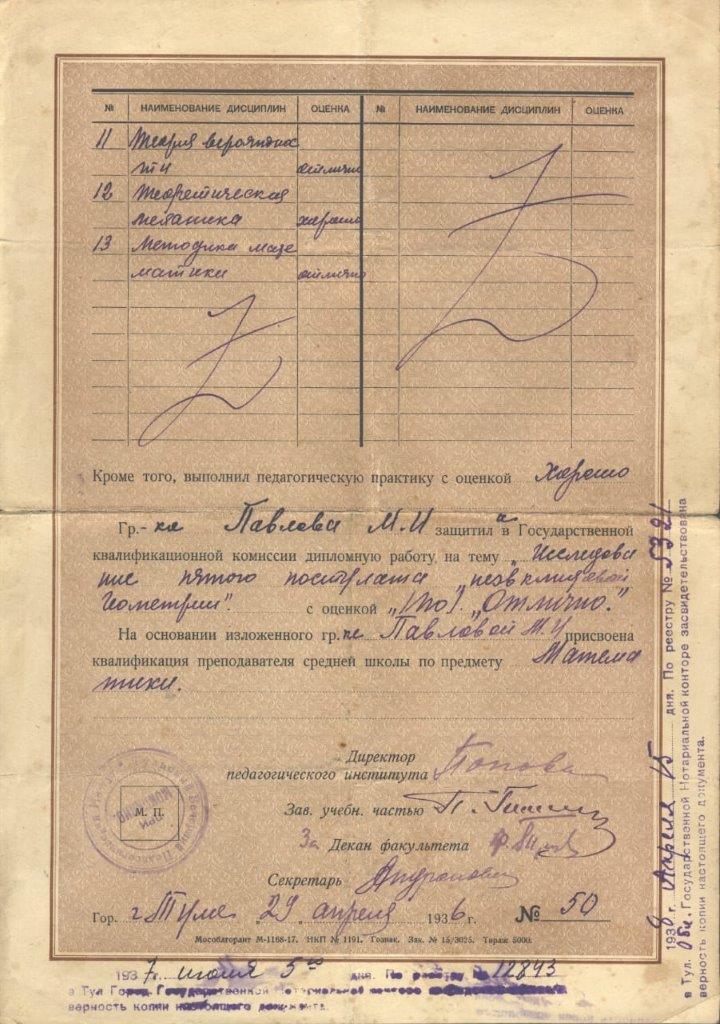 № НАИМЕНОВАНИЕ ДИСЦИПЛИН ОЦЕНКА № НАИМЕНОВАНИЕ ДИСЦИПЛИН ОЦЕНКА
11 Теория вероятнос
ти отлично
12 Теоретическая
механика хорошо
13 Методика мате
матики отлично
Кроме того, выполнил педагогическую практику с оценкой хорошо
Гр.-ка Павлова М.И защитила в Государственной
квалификационной комиссии дипломную работу на тему „Исследова
ние пятого постулата неэвклидовой
геометрии". с оценкой „Отлично."
На основании изложенного гр. Павловой М.И присвоена
квалификация преподавателя средней школы по предмету Матема
тики.
Директор
педагогического института Попова
Зав. учебн. частью
За Декан факультета
Секретарь
М. П.
Гор. г. Туле „29 апреля 1936 г. № 50
Мособлгорлит М-1168-17. НКП № 1191. Гознак. Зак. № 15/3025. Тираж 5000.
1937 г. июля 5го дня. По реестру № 12893
в Тул Город. Государственной Нотариальной конторе
верность копии настоящего документа.
193 г. Апреля 15 дня. По реестру № 5321
в Тул. Обл. Государственной Нотариальной конторе засвидетельствована
верность копии настоящего документа.